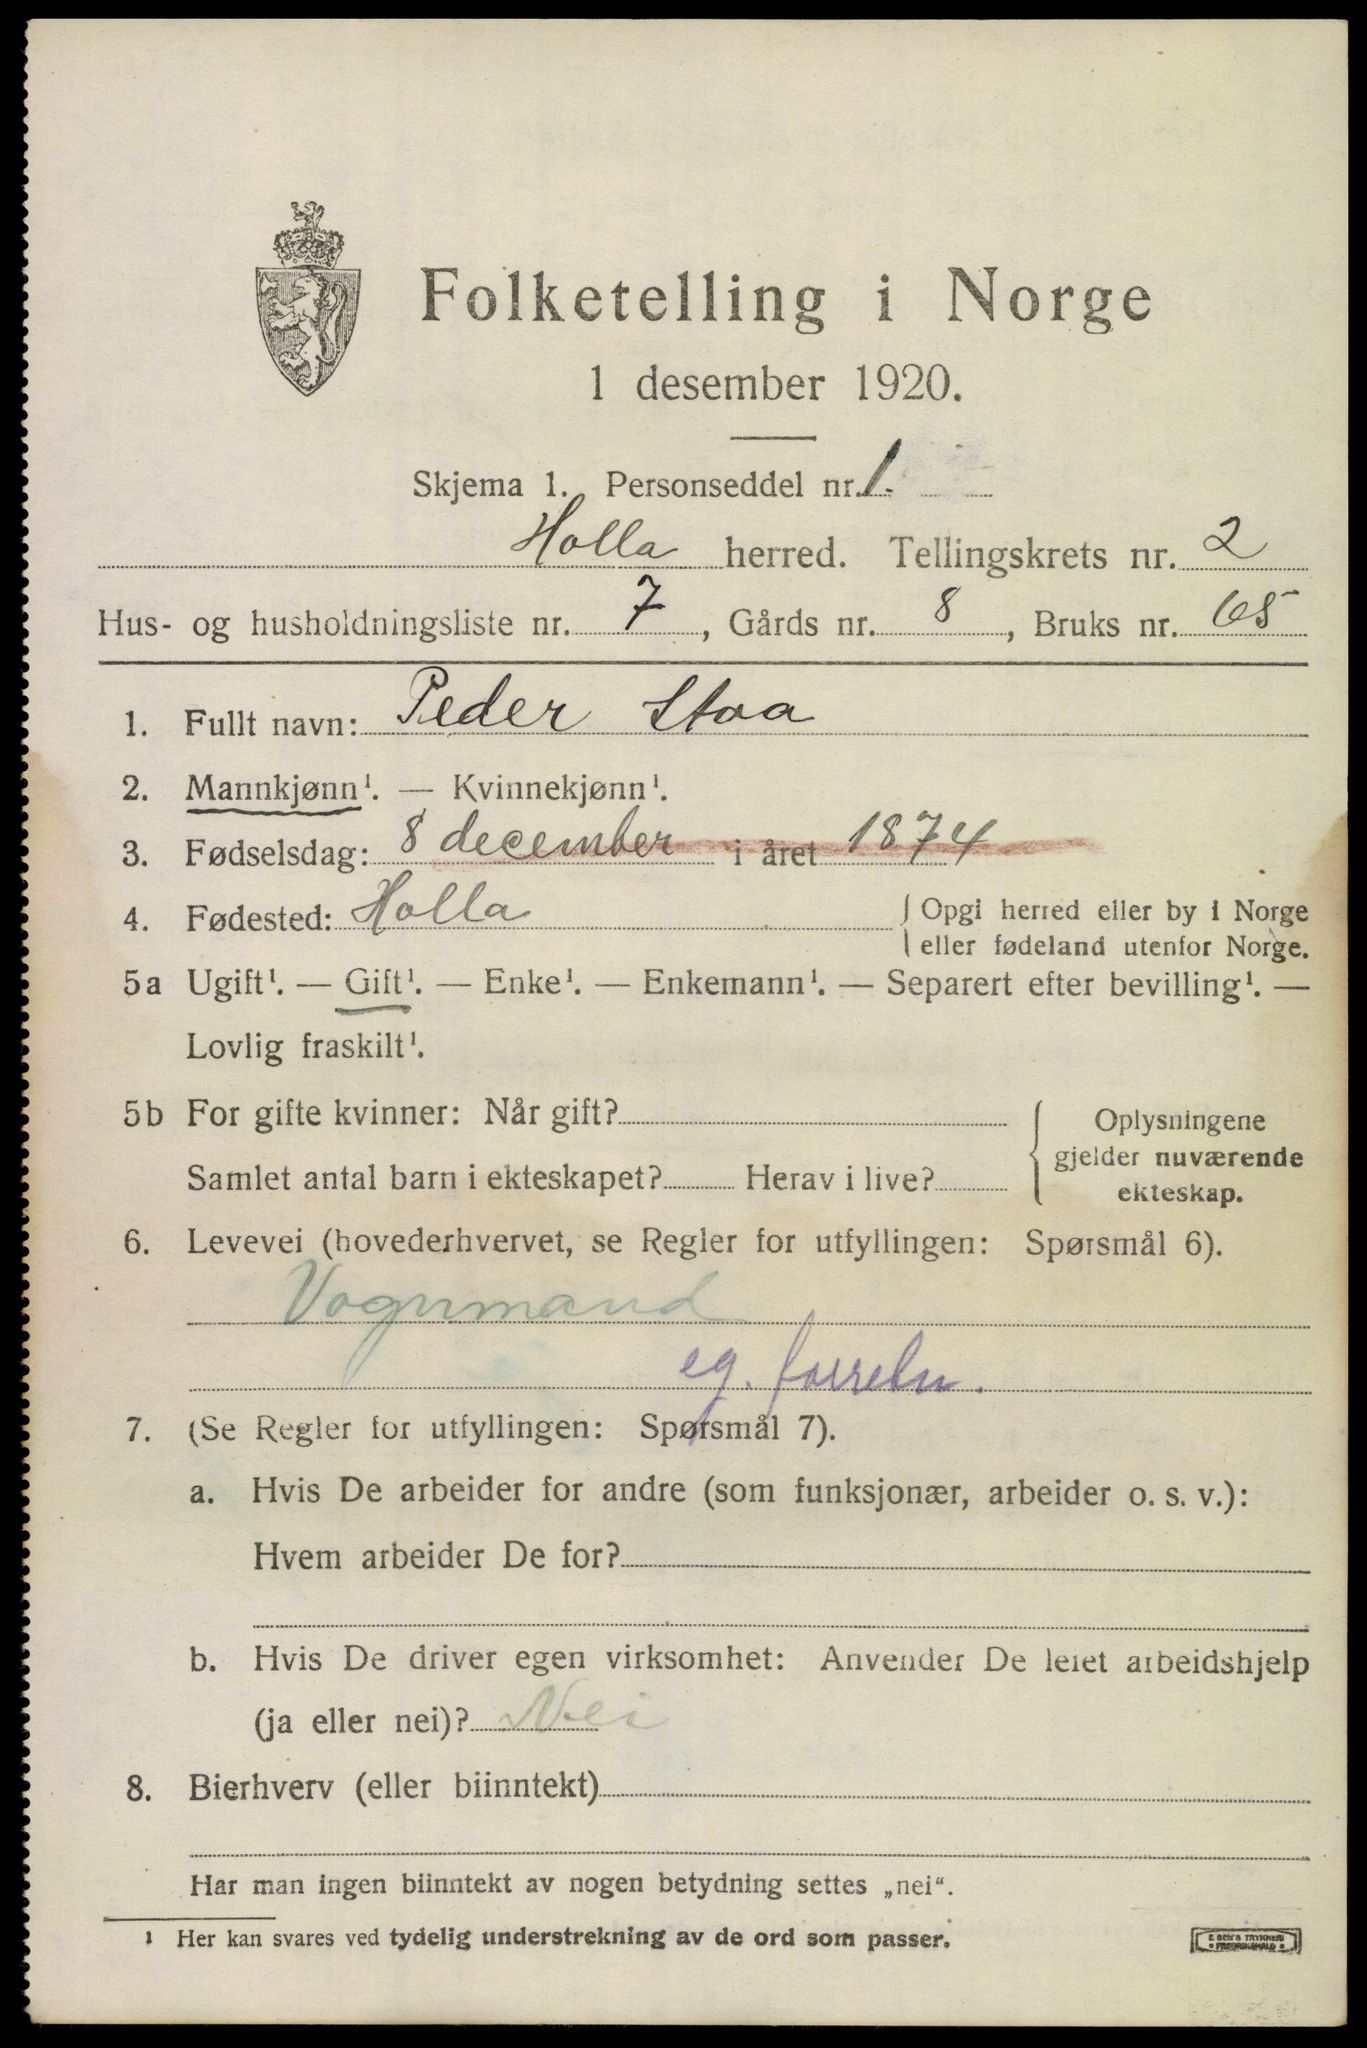 Folketelling i Norge
1 desember 1920.
Skjema 1. Personseddel nr. 1.
Holla herred. Tellingskrets nr. 2
Hus- og husholdningsliste nr. 7, Gårds nr. 8, Bruks nr. 65
1. Fullt navn: Peder Staa
2. Mannkjønn¹. — Kvinnekjønn¹.
3. Fødselsdag: 8 december i året 1874
4. Fødested: Holla {Opgi herred eller by i Norge
eller fødeland utenfor Norge.
5a Ugift¹. — Gift¹. — Enke¹. — Enkemann¹. — Separert efter bevilling¹. —
Lovlig fraskilt¹.
5b For gifte kvinner: Når gift? { Oplysningene
gjelder nuværende
Samlet antal barn i ekteskapet? Herav i live?
ekteskap.
6. Levevei (hovederhvervet, se Regler for utfyllingen: Spørsmål 6).
Vognmand
eg.
7. (Se Regler for utfyllingen: Spørsmål 7).
a. Hvis De arbeider for andre (som funksjonær, arbeider o. s. v.):
Hvem arbeider De for?
b. Hvis De driver egen virksomhet: Anvender De leiet arbeidshjelp
(ja eller nei)? Nei
8. Bierhverv (eller biinntekt)
Har man ingen biinntekt av nogen betydning settes „nei“.
¹ Her kan svares ved tydelig understrekning av de ord som passer.
E. SEM'S TRYKKERI
• FREDRIKSHALD •